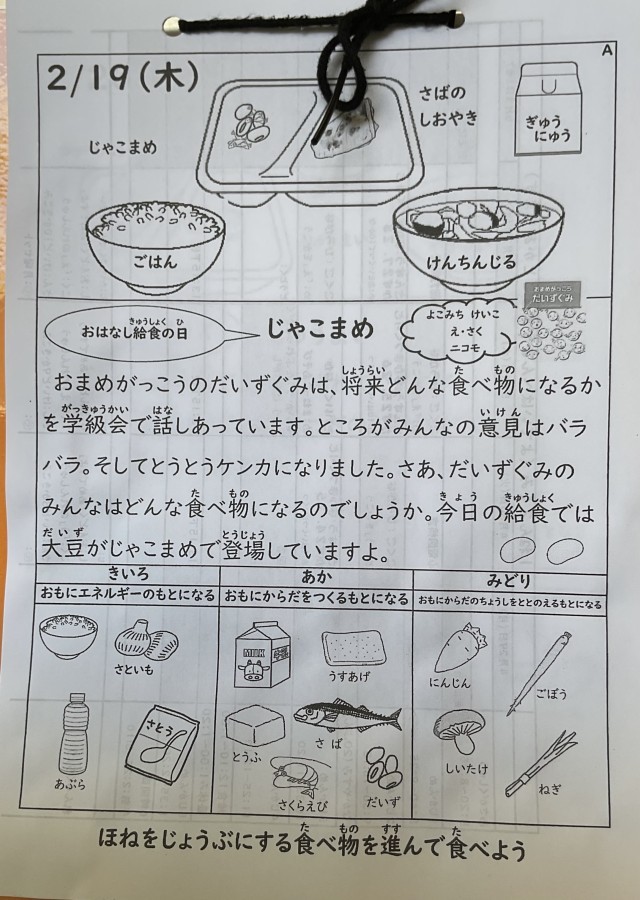 A
2/19(木)
さばの
しおやき
ぎゅう
にゅう
じゃこまめ
ごはん
けんちんじる
おはなし給食の日
きゅうしょく ひ
じゃこまめ
よこみち けいこ
え・さく
ニコモ
おまめがっこう
だいずぐみ
しょうらい た もの
おまめがっこうのだいずぐみは、将来どんな食べ物になるか
がっきゅうかい はな いけん
を学級会で話しあっています。ところがみんなの意見はバラ
バラ。そしてとうとうケンカになりました。さあ、だいずぐみの
た もの きょう きゅうしょく
みんなはどんな食べ物になるのでしょうか。今日の給食では
だいず とうじょう
大豆がじゃこまめで登場していますよ。
きいろ あか みどり
おもにエネルギーのもとになる おもにからだをつくるもとになる おもにからだのちょうしをととのえるもとになる
さといも
あぶら
さとう
MILK
うすあげ
とうふ
さば
さくらえび
だいず
にんじん
ごぼう
しいたけ
ねぎ
た もの すす た
ほねをじょうぶにする食べ物を進んで食べよう